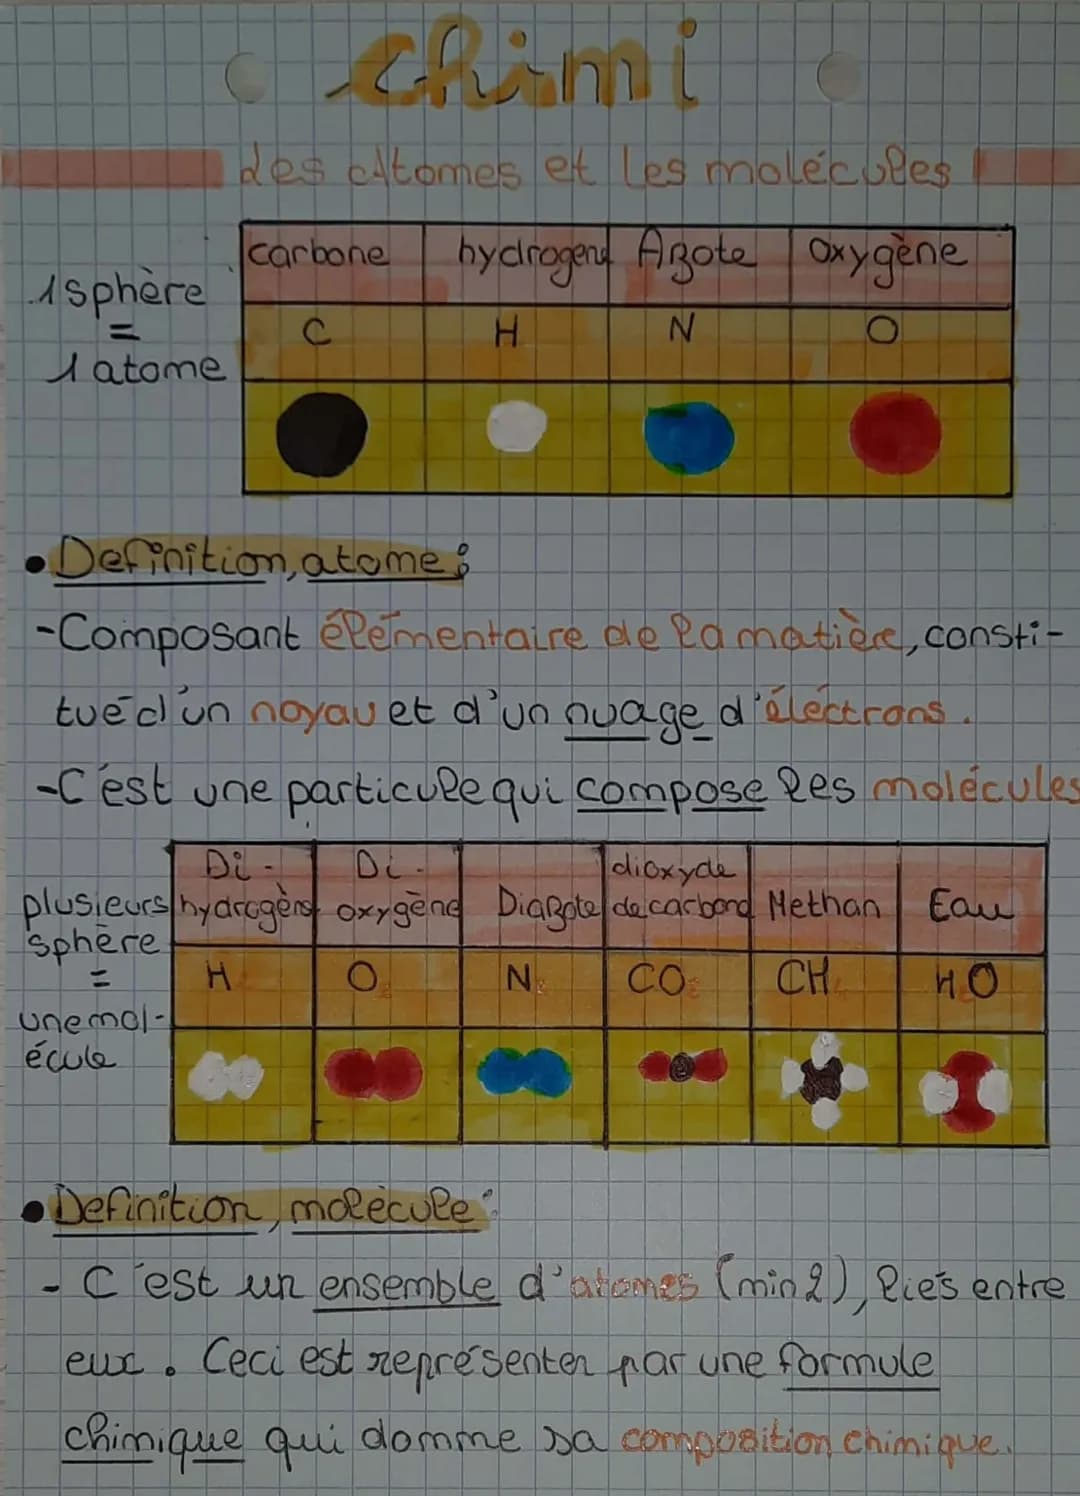 chimi
Les Atomes et les molécules
carbone hydrogene Azote oxygène
1 sphère
=
1 atome
C H N O
• Definition, atome :
- Composant élémentaire de la matière, consti-
tué d'un noyau et d'un nuage d'éléctrons.
- C'est une particule qui compose les molécules
Di-
hydrogène
Di-
oxygène
Diazote
dioxyde
de carbone
Methan
Eau
plusieurs
sphère
=
une mol-
écule
H₂ O₂ N₂ CO₂ CH₄ H₂O
• Definition, molécule :
- C'est un ensemble d'atomes (min 2), liés entre
eux. Ceci est représenter par une formule
chimique qui domme sa composition chimique.